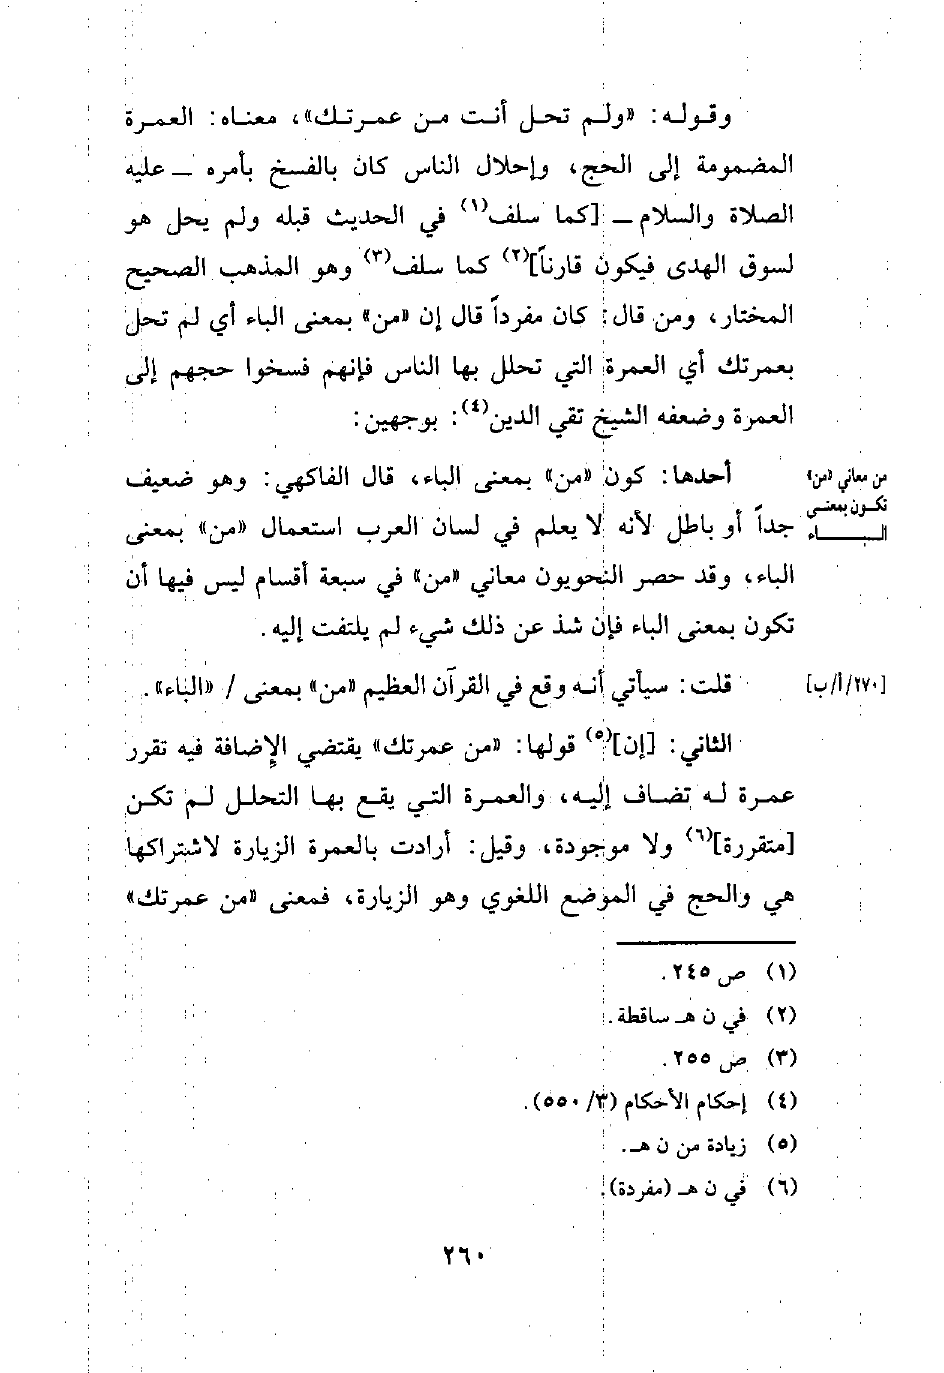 وقوله: «ولم تحل أنت من عمرتك»، معناه: العمرة
المضمومة إلى الحج، وإحلال الناس كان بالفسخ بأمره ــ عليه
الصلاة والسلام ــ [كما سلف(١) في الحديث قبله ولم يحل هو
لسوق الهدى فيكون قارناً](٢) كما سلف(٣) وهو المذهب الصحيح
المختار، ومن قال: كان مفرداً قال إن «من» بمعنى الباء أي لم تحل
بعمرتك أي العمرة التي تحلل بها الناس فإنهم فسخوا حجهم إلى
العمرة وضعفه الشيخ تقي الدين(٤): بوجهين:
أحدها: كون «من» بمعنى الباء، قال الفاكهي: وهو ضعيف
جداً أو باطل لأنه لا يعلم في لسان العرب استعمال «من» بمعنى
الباء، وقد حصر النحويون معاني «من» في سبعة أقسام ليس فيها أن
تكون بمعنى الباء فإن شذ عن ذلك شيء لم يلتفت إليه.
من معاني «من»
تكون بمعنى
البـــاء
قلت: سيأتي أنه وقع في القرآن العظيم «من» بمعنى / «الباء».
[٢٧٠/أ/ب]
الثاني: [إن](٥) قولها: «من عمرتك» يقتضي الإضافة فيه تقرر
عمرة له تضاف إليه، والعمرة التي يقع بها التحلل لم تكن
[متقررة](٦) ولا موجودة، وقيل: أرادت بالعمرة الزيارة لاشتراكها
هي والحج في الموضع اللغوي وهو الزيارة، فمعنى «من عمرتك»
(١) ص ٢٤٥.
(٢) في ن هـ ساقطة.
(٣) ص ٢٥٥.
(٤) إحكام الأحكام (٣/ ٥٥٠).
(٥) زيادة من ن هـ.
(٦) في ن هـ (مفردة).
٢٦٠